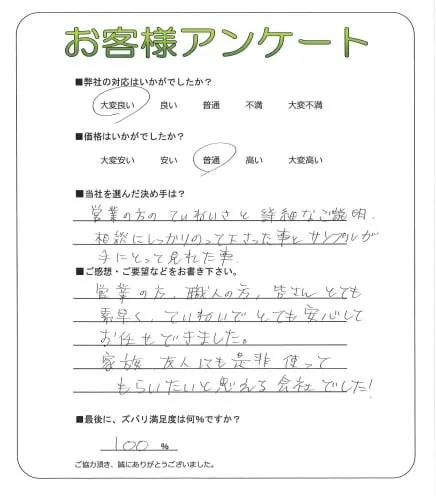 お客様アンケート
■弊社の対応はいかがでしたか?
大変良い 良い 普通 不満 大変不満
■価格はいかがでしたか?
大変安い 安い 普通 高い 大変高い
■当社を選んだ決め手は?
営業の方のていねいさと詳細なご説明.
相談にしっかりのって下さった事とサンプルが
手にとって見れた事.
■ご感想・ご要望などをお書き下さい。
営業の方、職人の方、皆さんとても
素早く、ていねいでとても安心して
お任せできました。
家族、友人にも是非使って
もらいたいと思える会社でした!
■最後に、ズバリ満足度は何%ですか?
100 %
ご協力頂き、誠にありがとうございました。